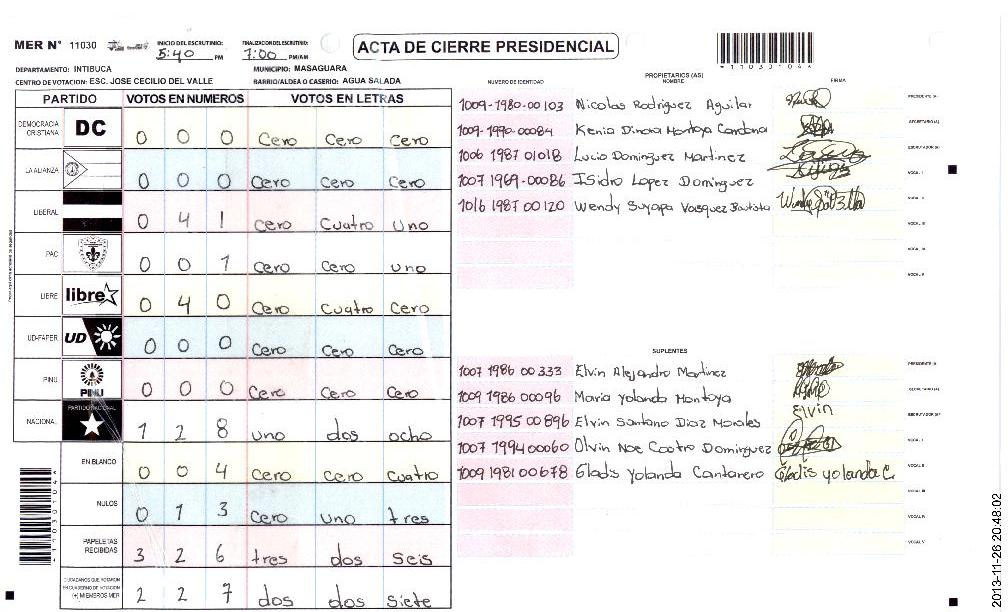 MER N° 11030
INICIO DEL ESCRUTINIO: 5:40 PM
FINALIZACION DEL ESCRUTINIO: 7:00 PM/AM
ACTA DE CIERRE PRESIDENCIAL
1103010 4
DEPARTAMENTO: INTIBUCA
MUNICIPIO: MASAGUARA
CENTRO DE VOTACION: ESC. JOSE CECILIO DEL VALLE
BARRIO/ALDEA O CASERIO: AGUA SALADA
PARTIDO VOTOS EN NUMEROS VOTOS EN LETRAS
DEMOCRACIA CRISTIANA DC 0 0 0 Cero Cero Cero
LA ALIANZA 0 0 0 Cero Cero Cero
LIBERAL 0 4 1 Cero Cuatro Uno
PAC 0 0 1 Cero Cero uno
LIBRE libre 0 4 0 Cero Cuatro Cero
UD-FAPER UD 0 0 0 Cero Cero Cero
PINU PINU 0 0 0 Cero Cero Cero
NACIONAL PARTIDO NACIONAL 1 2 8 uno dos ocho
EN BLANCO 0 0 4 Cero Cero Cuatro
NULOS 0 1 3 Cero uno tres
PAPELETAS RECIBIDAS 3 2 6 tres dos seis
CIUDADANOS QUE VOTARON EN CUADERNO DE VOTACION (+) MIEMBROS MER 2 2 7 dos dos siete
NUMERO DE IDENTIDAD
PROPIETARIOS (AS)
NOMBRE
FIRMA
1009-1980-00103 Nicolas Rodriguez Aguilar PRESIDENTE (A)
1009-1990-00084 Kenia Dinora Montoya Cardona SECRETARIO (A)
1006 1987 01018 Lucio Dominguez Martinez ESCRUTADOR (A)
1007 1969-00086 Isidro Lopez Dominguez VOCAL I
1016 1987 00120 Wendy Suyapa Vasquez Bautista VOCAL II
VOCAL III
VOCAL IV
VOCAL V
SUPLENTES
1007 1986 00333 Elvin Alejandro Martinez PRESIDENTE (A)
1009 1986 00096 Maria Yolanda Montoya SECRETARIO (A)
1007 1995 00896 Elvin Santano Diaz Morales Elvin ESCRUTADOR (A)
1007 1994 00060 Olvin Noe Castro Dominguez VOCAL I
1009 1981 00678 Gladis Yolanda Cantarero Gladis yolanda C. VOCAL II
VOCAL III
VOCAL IV
VOCAL V
2013-11-26 20:48:02